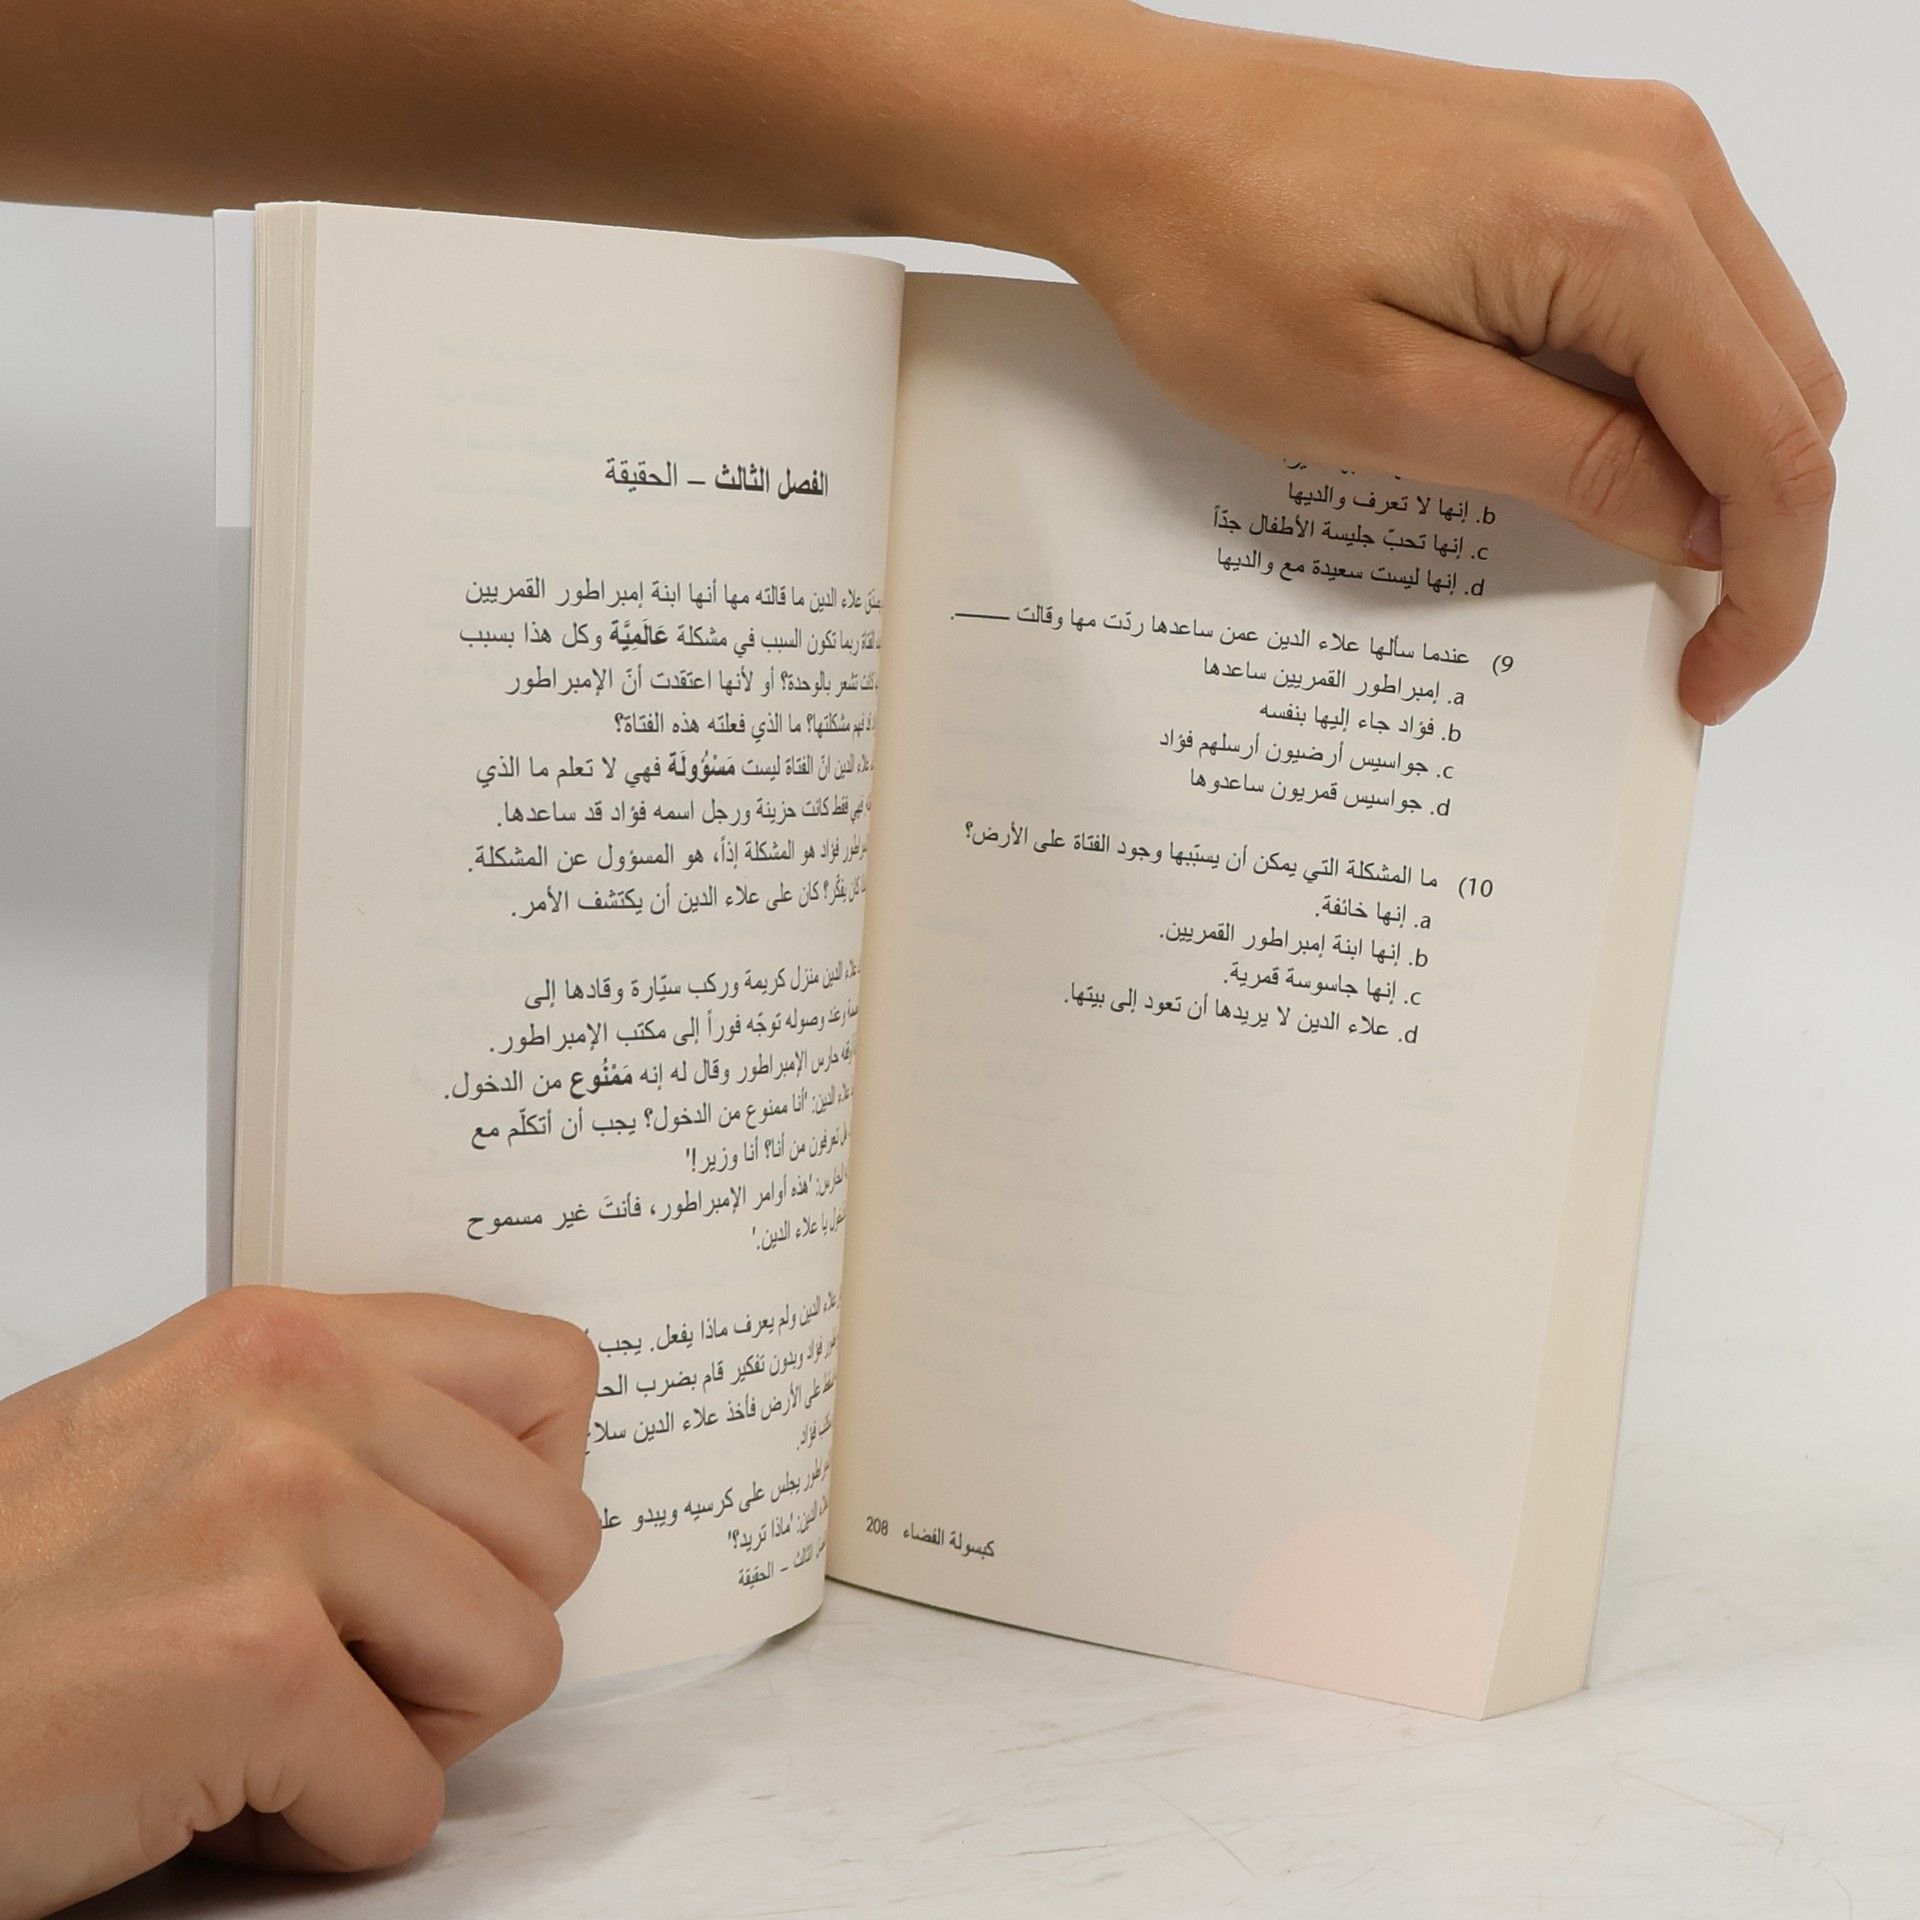 b. إنها لا تعرف والديها
c. إنها تحبّ جليسة الأطفال جدّاً
d. إنها ليست سعيدة مع والديها
9) عندما سألها علاء الدين عمن ساعدها ردّت مها وقالت ____.
a. إمبراطور القمريين ساعدها
b. فؤاد جاء إليها بنفسه
c. جواسيس أرضيون أرسلهم فؤاد
d. جواسيس قمريون ساعدوها
10) ما المشكلة التي يمكن أن يسبّبها وجود الفتاة على الأرض؟
a. إنها خائفة.
b. إنها ابنة إمبراطور القمريين.
c. إنها جاسوسة قمرية.
d. علاء الدين لا يريدها أن تعود إلى بيتها.
208 كبسولة الفضاء
الفصل الثالث – الحقيقة
علاء الدين ما قالته مها أنها ابنة إمبراطور القمريين
ربما تكون السبب في مشكلة عَالَمِيَّة وكل هذا بسبب
كانت تشعر بالوحدة؟ أو لأنها اعتقدت أنّ الإمبراطور
مشكلتها؟ ما الذي فعلته هذه الفتاة؟
علاء الدين انّ الفتاة ليست مَسْؤُولَة فهي لا تعلم ما الذي
فهي فقط كانت حزينة ورجل اسمه فؤاد قد ساعدها.
فؤاد هو المشكلة إذاً، هو المسؤول عن المشكلة.
كان يفكّر؟ كان على علاء الدين أن يكتشف الأمر.
علاء الدين منزل كريمة وركب سيّارة وقادها إلى
وعند وصوله توجّه فوراً إلى مكتب الإمبراطور.
حارس الإمبراطور وقال له إنه مَمْنُوع من الدخول.
علاء الدين: 'أنا ممنوع من الدخول؟ يجب أن أتكلّم مع
هل تعرفون من أنا؟ أنا وزير!'
الحارس: 'هذه أوامر الإمبراطور، فأنتَ غير مسموح
يا علاء الدين.'
علاء الدين ولم يعرف ماذا يفعل. يجب
فؤاد وبدون تفكير قام بضرب
على الأرض فأخذ علاء الدين
فؤاد.
يجلس على كرسيه ويبدو
علاء الدين: 'ماذا تريد؟'
الثالث – الحقيقة